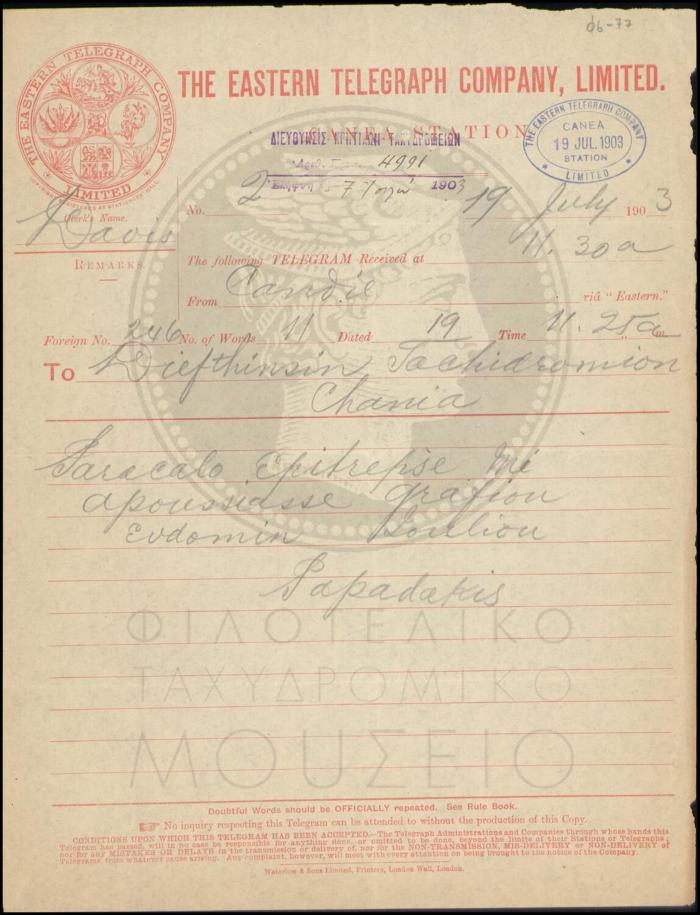 96-77
THE EASTERN TELEGRAPH COMPANY, LIMITED.
THE EASTERN TELEGRAPH COMPANY
LIMITED
CANEA STATION
ΔΙΕΥΘΥΝΣΙΣ ΚΡΗΤΙΚΩΝ ΤΑΧΥΔΡΟΜΕΙΩΝ
4991
7 1903
THE EASTERN TELEGRAPH COMPANY
CANEA
19 JUL.1903
STATION
LIMITED
Clerk's Name.
Davis
No. 2
19 July 1903
REMARKS.
The following TELEGRAM Received at 11.30a
From Candie viâ "Eastern."
Foreign No. 246 No. of Words 11 Dated 19 Time 11.25a m
To Diefthinsin Tachidromion
Chania
Paracalo Epitrepse mi
apoussiasse grafiou
Evdomin Iouliou
Papadakis
ΦΙΛΟΤΕΛΙΚΟ
ΤΑΧΥΔΡΟΜΙΚΟ
ΜΟΥΣΕΙΟ
Doubtful Words should be OFFICIALLY repeated. See Rule Book.
No inquiry respecting this Telegram can be attended to without the production of this Copy.
CONDITIONS UPON WHICH THIS TELEGRAM HAS BEEN ACCEPTED.—The Telegraph Administrations and Companies through whose hands this
Telegram has passed, will in no case be responsible for anything done, or omitted to be done, beyond the limits of their Stations or Telegraphs;
nor for any MISTAKES OR DELAYS in the transmission or delivery of, nor for the NON-TRANSMISSION, MIS-DELIVERY or NON-DELIVERY of
Telegrams, from whatever cause arising. Any complaint, however, will meet with every attention on being brought to the notice of the Company.
Waterlow & Sons Limited, Printers, London Wall, London.